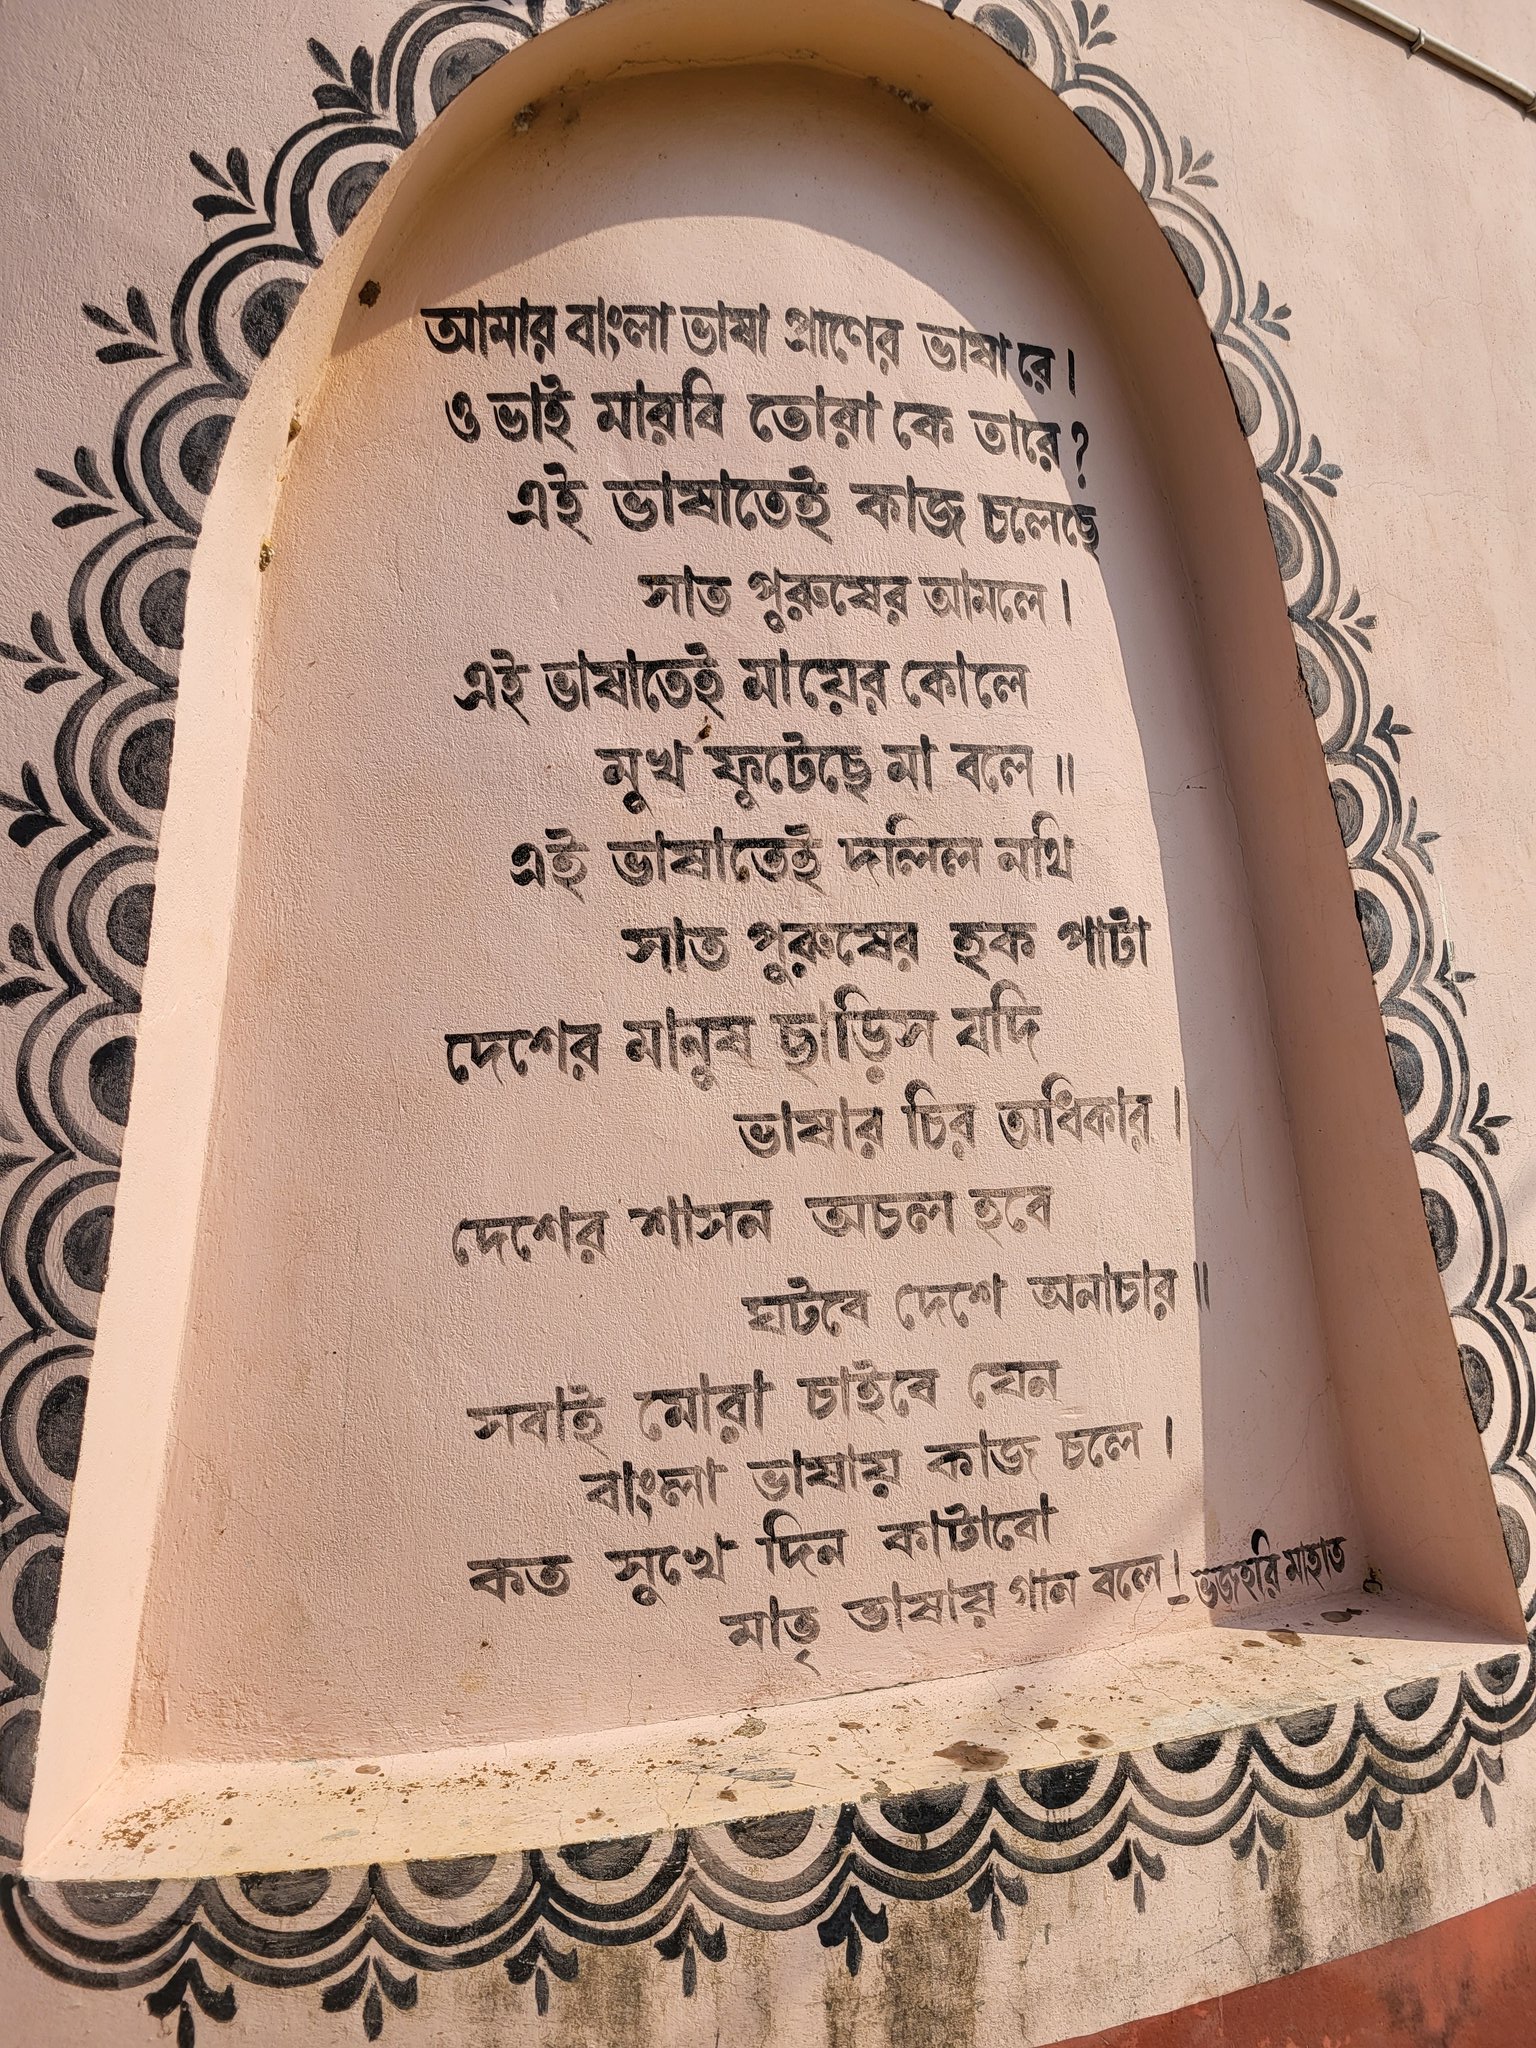 আমার বাংলা ভাষা প্রাণের ভাষা রে।
ও ভাই মারবি তোরা কে তারে?
এই ভাষাতেই কাজ চলেছে
সাত পুরুষের আমলে।
এই ভাষাতেই মায়ের কোলে
মুখ ফুটেছে মা বলে॥
এই ভাষাতেই দলিল নথি
সাত পুরুষের হক পাটা
দেশের মানুষ ছাড়িস যদি
ভাষার চির অধিকার।
দেশের শাসন অচল হবে
ঘটবে দেশে অনাচার॥
সবাই মোরা চাইবে যেন
বাংলা ভাষায় কাজ চলে।
কত সুখে দিন কাটাবো
মাতৃ ভাষায় গান বলে। - ভজহরি মাহাত